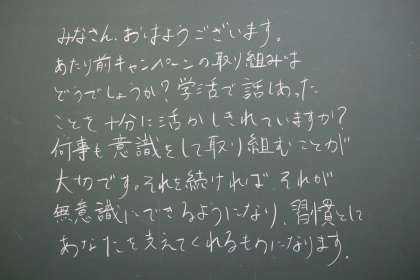 みなさん、おはようございます。
あたり前キャンペーンの取り組みは
どうでしょうか？学活で話しあった
ことを十分に活かしきれていますか？
何事も意識をして取り組むことが
大切です。それを続ければ、それが
無意識にできるようになり、習慣として
あなたを支えてくれるものになります。